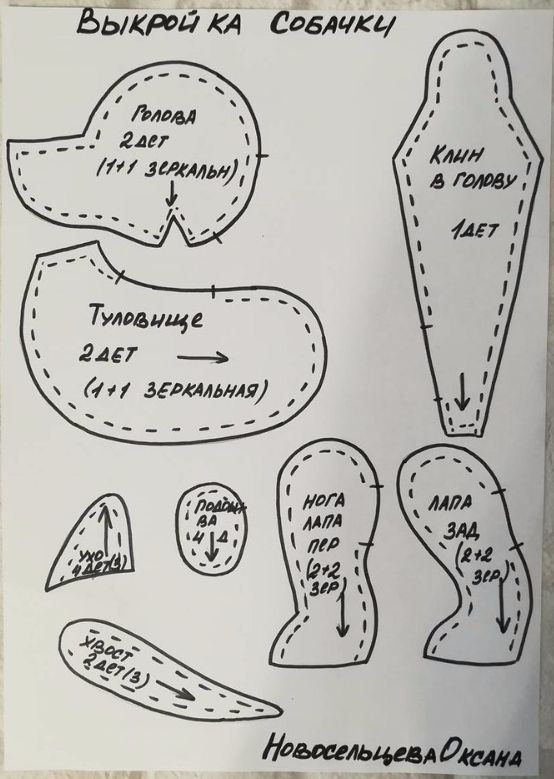 ВЫКРОЙКА СОБАЧКИ
ГОЛОВА
2 ДЕТ
(1+1 ЗЕРКАЛЬН)
КЛИН
В ГОЛОВУ
1 ДЕТ
ТУЛОВИЩЕ
2 ДЕТ
(1+1 ЗЕРКАЛЬНАЯ)
УХО
4 ДЕТ(З)
ПОДОШ
ВА
4 Д
НОГА
ЛАПА
ПЕР
(2+2
ЗЕР)
ЛАПА
ЗАД
(2+2
ЗЕР)
ХВОСТ
2 ДЕТ(З)
НОВОСЕЛЬЦЕВА ОКСАНА